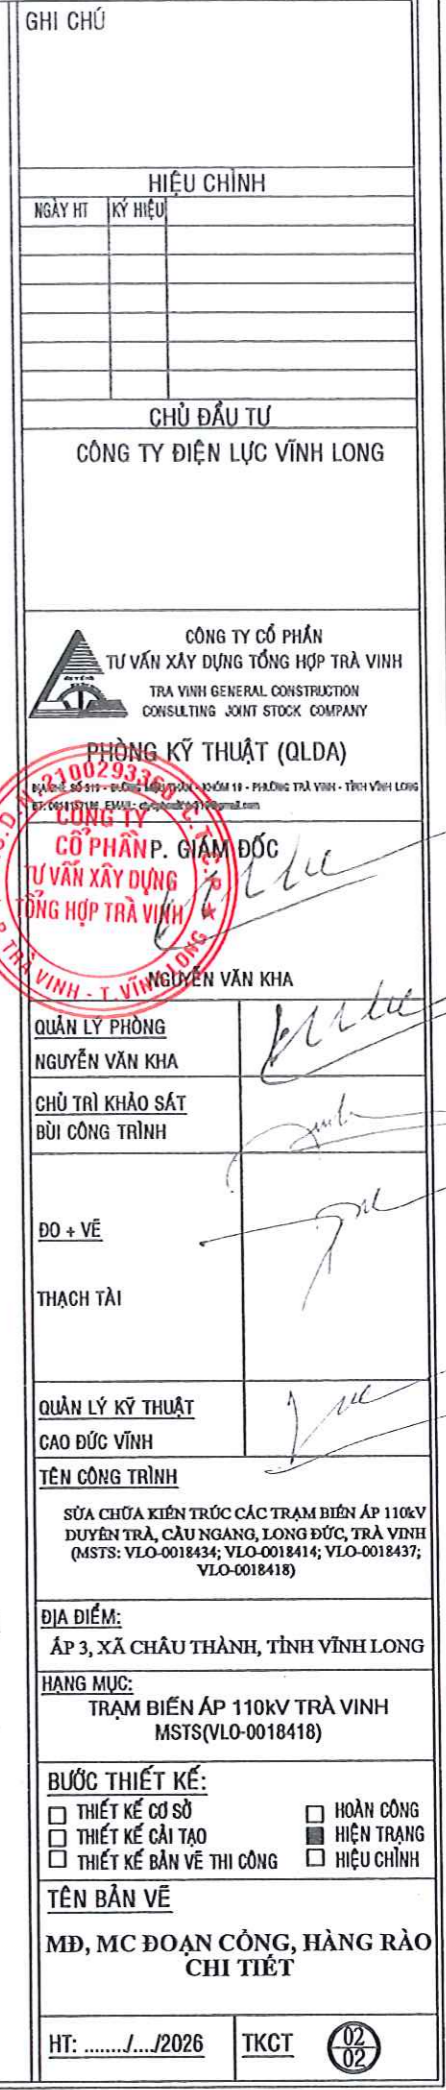 GHI CHÚ
HIỆU CHỈNH
NGÀY HT KÝ HIỆU
CHỦ ĐẦU TƯ
CÔNG TY ĐIỆN LỰC VĨNH LONG
CÔNG TY CỔ PHẦN
TƯ VẤN XÂY DỰNG TỔNG HỢP TRÀ VINH
TRA VINH GENERAL CONSTRUCTION
CONSULTING JOINT STOCK COMPANY
PHÒNG KỸ THUẬT (QLDA)
KHÓM 10 - PHƯỜNG TRÀ VINH - TỈNH VĨNH LONG
2100293360
CÔNG TY
CỔ PHẦN
TƯ VẤN XÂY DỰNG
TỔNG HỢP TRÀ VINH
TRÀ VINH - T. VĨNH LONG
P. GIÁM ĐỐC
NGUYỄN VĂN KHA
QUẢN LÝ PHÒNG
NGUYỄN VĂN KHA
CHỦ TRÌ KHẢO SÁT
BÙI CÔNG TRÌNH
ĐO + VẼ
THẠCH TÀI
QUẢN LÝ KỸ THUẬT
CAO ĐỨC VĨNH
TÊN CÔNG TRÌNH
SỬA CHỮA KIẾN TRÚC CÁC TRẠM BIẾN ÁP 110kV
DUYÊN TRÀ, CẦU NGANG, LONG ĐỨC, TRÀ VINH
(MSTS: VLO-0018434; VLO-0018414; VLO-0018437;
VLO-0018418)
ĐỊA ĐIỂM:
ẤP 3, XÃ CHÂU THÀNH, TỈNH VĨNH LONG
HẠNG MỤC:
TRẠM BIẾN ÁP 110kV TRÀ VINH
MSTS(VLO-0018418)
BƯỚC THIẾT KẾ:
THIẾT KẾ CƠ SỞ HOÀN CÔNG
THIẾT KẾ CẢI TẠO HIỆN TRẠNG
THIẾT KẾ BẢN VẼ THI CÔNG HIỆU CHỈNH
TÊN BẢN VẼ
MĐ, MC ĐOẠN CỔNG, HÀNG RÀO
CHI TIẾT
HT: ......../..../2026 TKCT 02
02